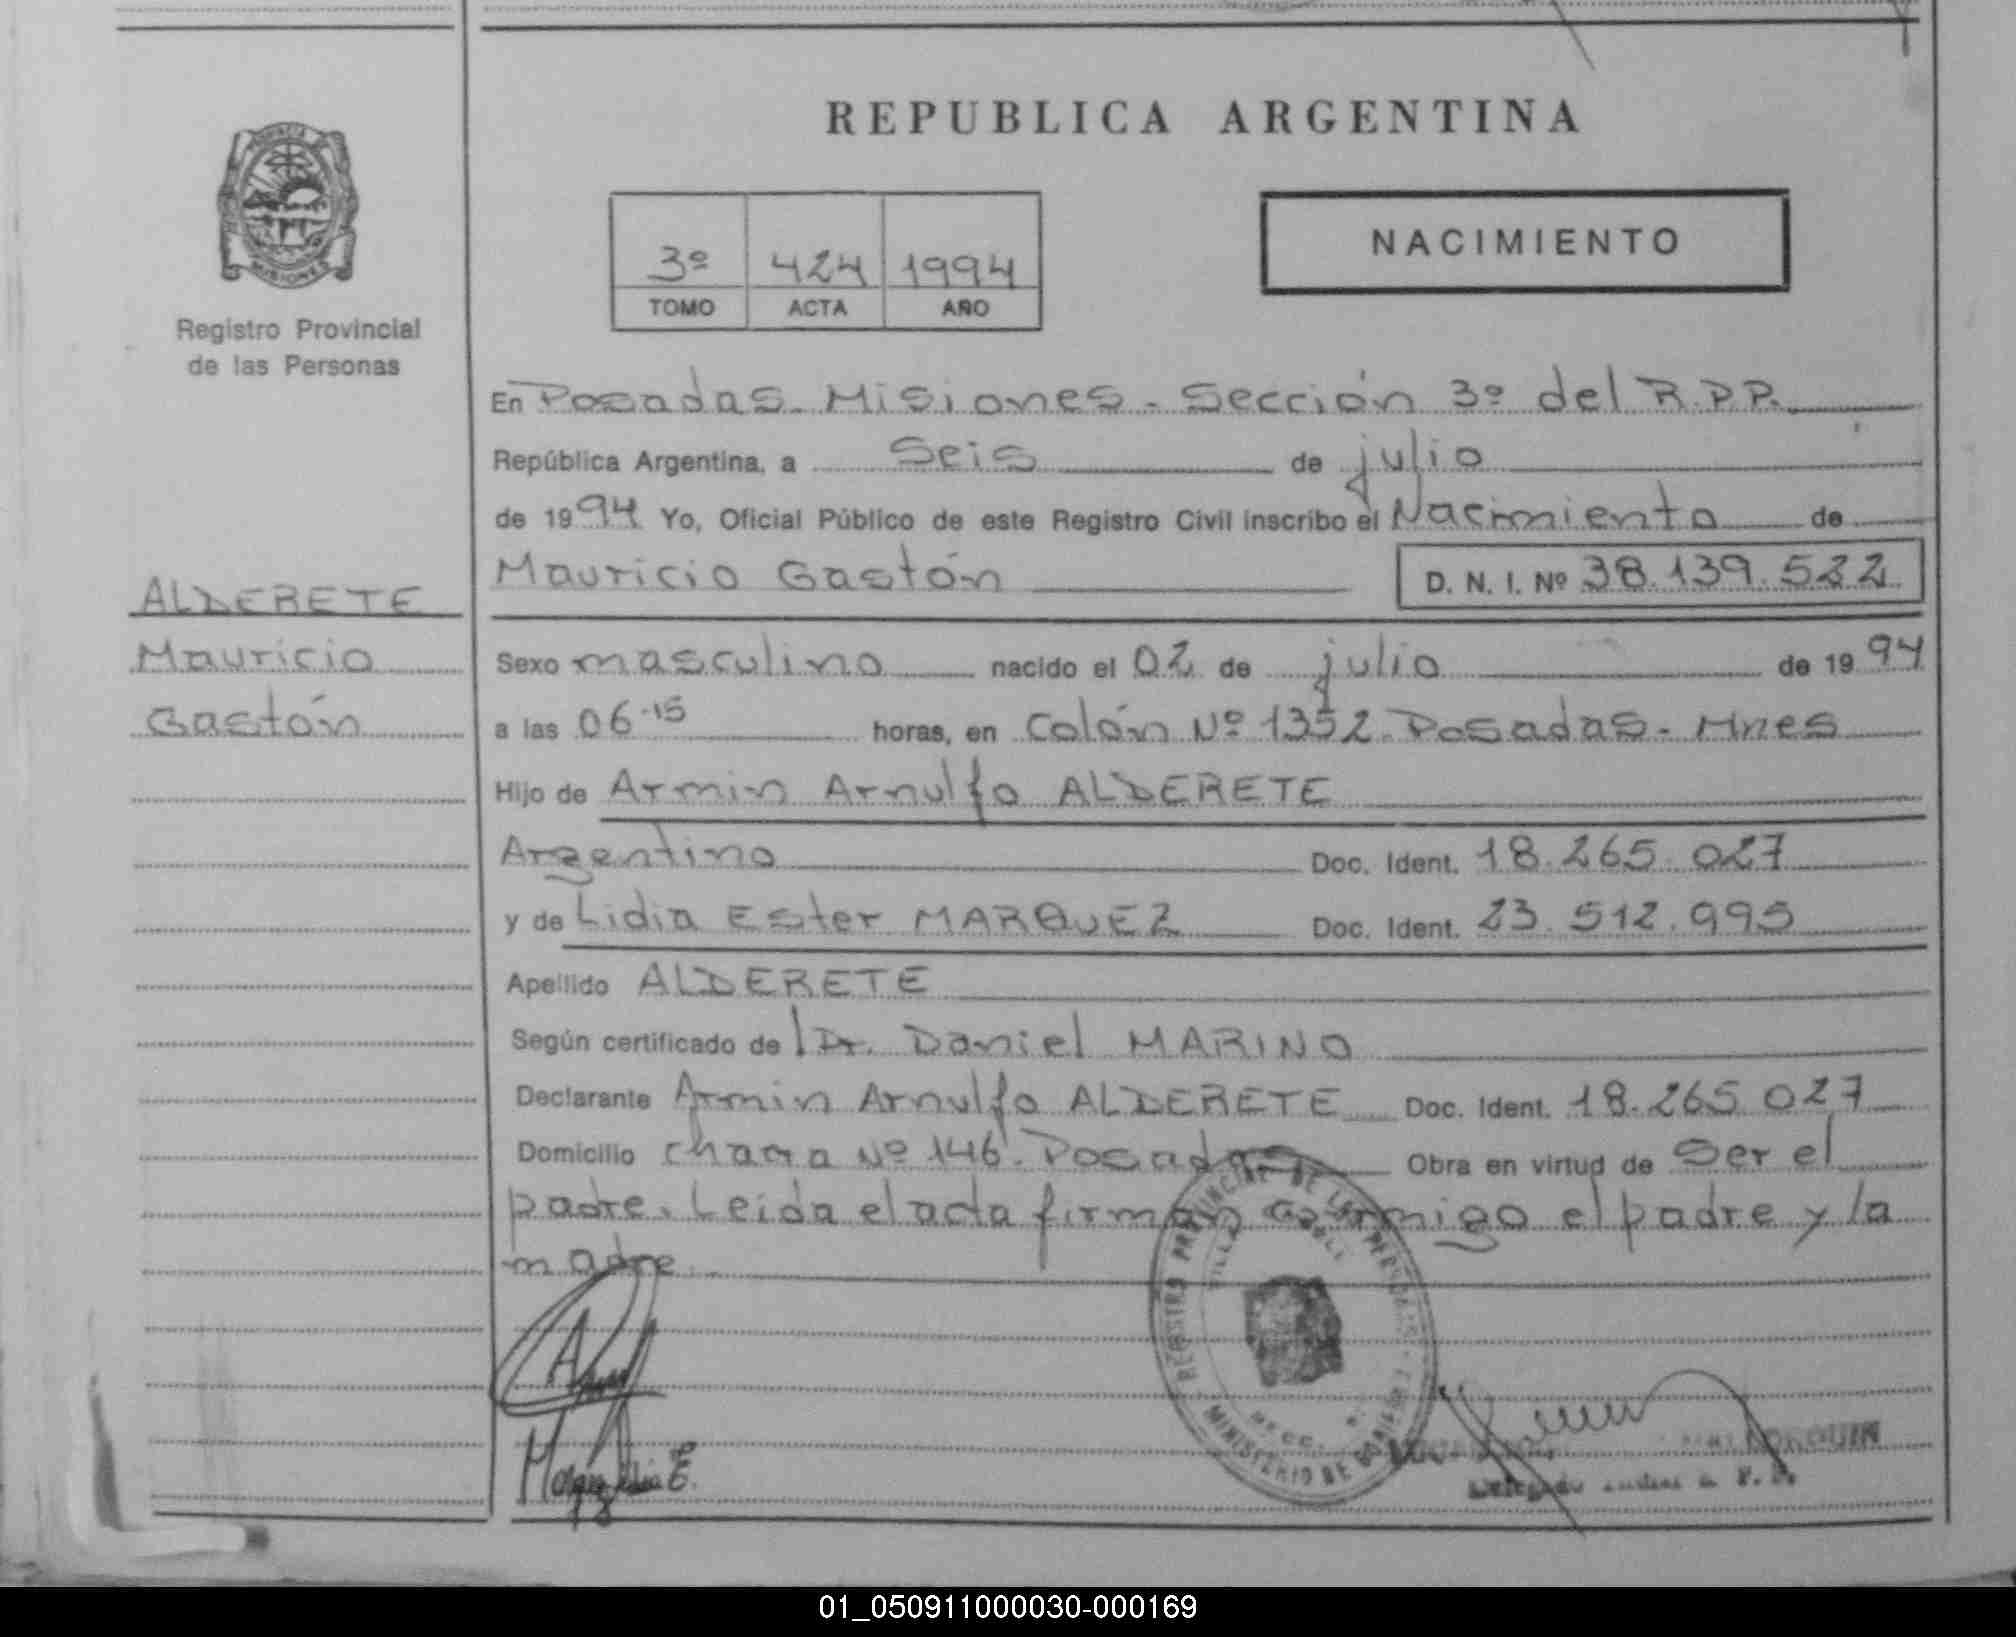 REPUBLICA ARGENTINA
PROVINCIA
MISIONES
Registro Provincial
de las Personas
3º 424 1994
TOMO ACTA AÑO
NACIMIENTO
En Posadas - Misiones - Sección 3º del R.P.P.
República Argentina, a Seis de julio
de 1994 Yo, Oficial Público de este Registro Civil inscribo el Nacimiento de
Mauricio Gastón D. N. I. Nº 38.139.522
ALDERETE
Mauricio
Gastón
Sexo masculino nacido el 02 de julio de 1994
a las 06.15 horas, en Colón Nº 1352. Posadas - Mnes
Hijo de Armin Arnulfo ALDERETE
Argentino Doc. Ident. 18.265.027
y de Lidia Ester MARQUEZ Doc. Ident. 23.512.995
Apellido ALDERETE
Según certificado de Dr. Daniel MARINO
Declarante Armin Arnulfo ALDERETE Doc. Ident. 18.265.027
Domicilio chacra Nº 146. Posadas Obra en virtud de Ser el
padre. Leída el acta firman conmigo el padre y la
madre.
REGISTRO PROVINCIAL DE LAS PERSONAS
MINISTERIO DE GOBIERNO
01_050911000030-000169